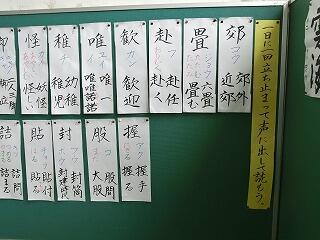 一日に一回立ち止まって声に出して読もう。
郊
コウ
郊外
近郊
畳
ジョウ
六畳
畳む
赴
フ
赴任
赴く
歓
カン
歓迎
唯
ユイ
唯一
唯唯諾諾
稚
チ
幼稚
稚児
怪
カイ
妖怪
怪しい
握
アク
にぎる
握手
握る
股
コ
また
股間
大股
封
フウ
ホウ
封筒
封建時代
貼
チョウ
はる
貼付
貼る
詰
詰問
詰まる